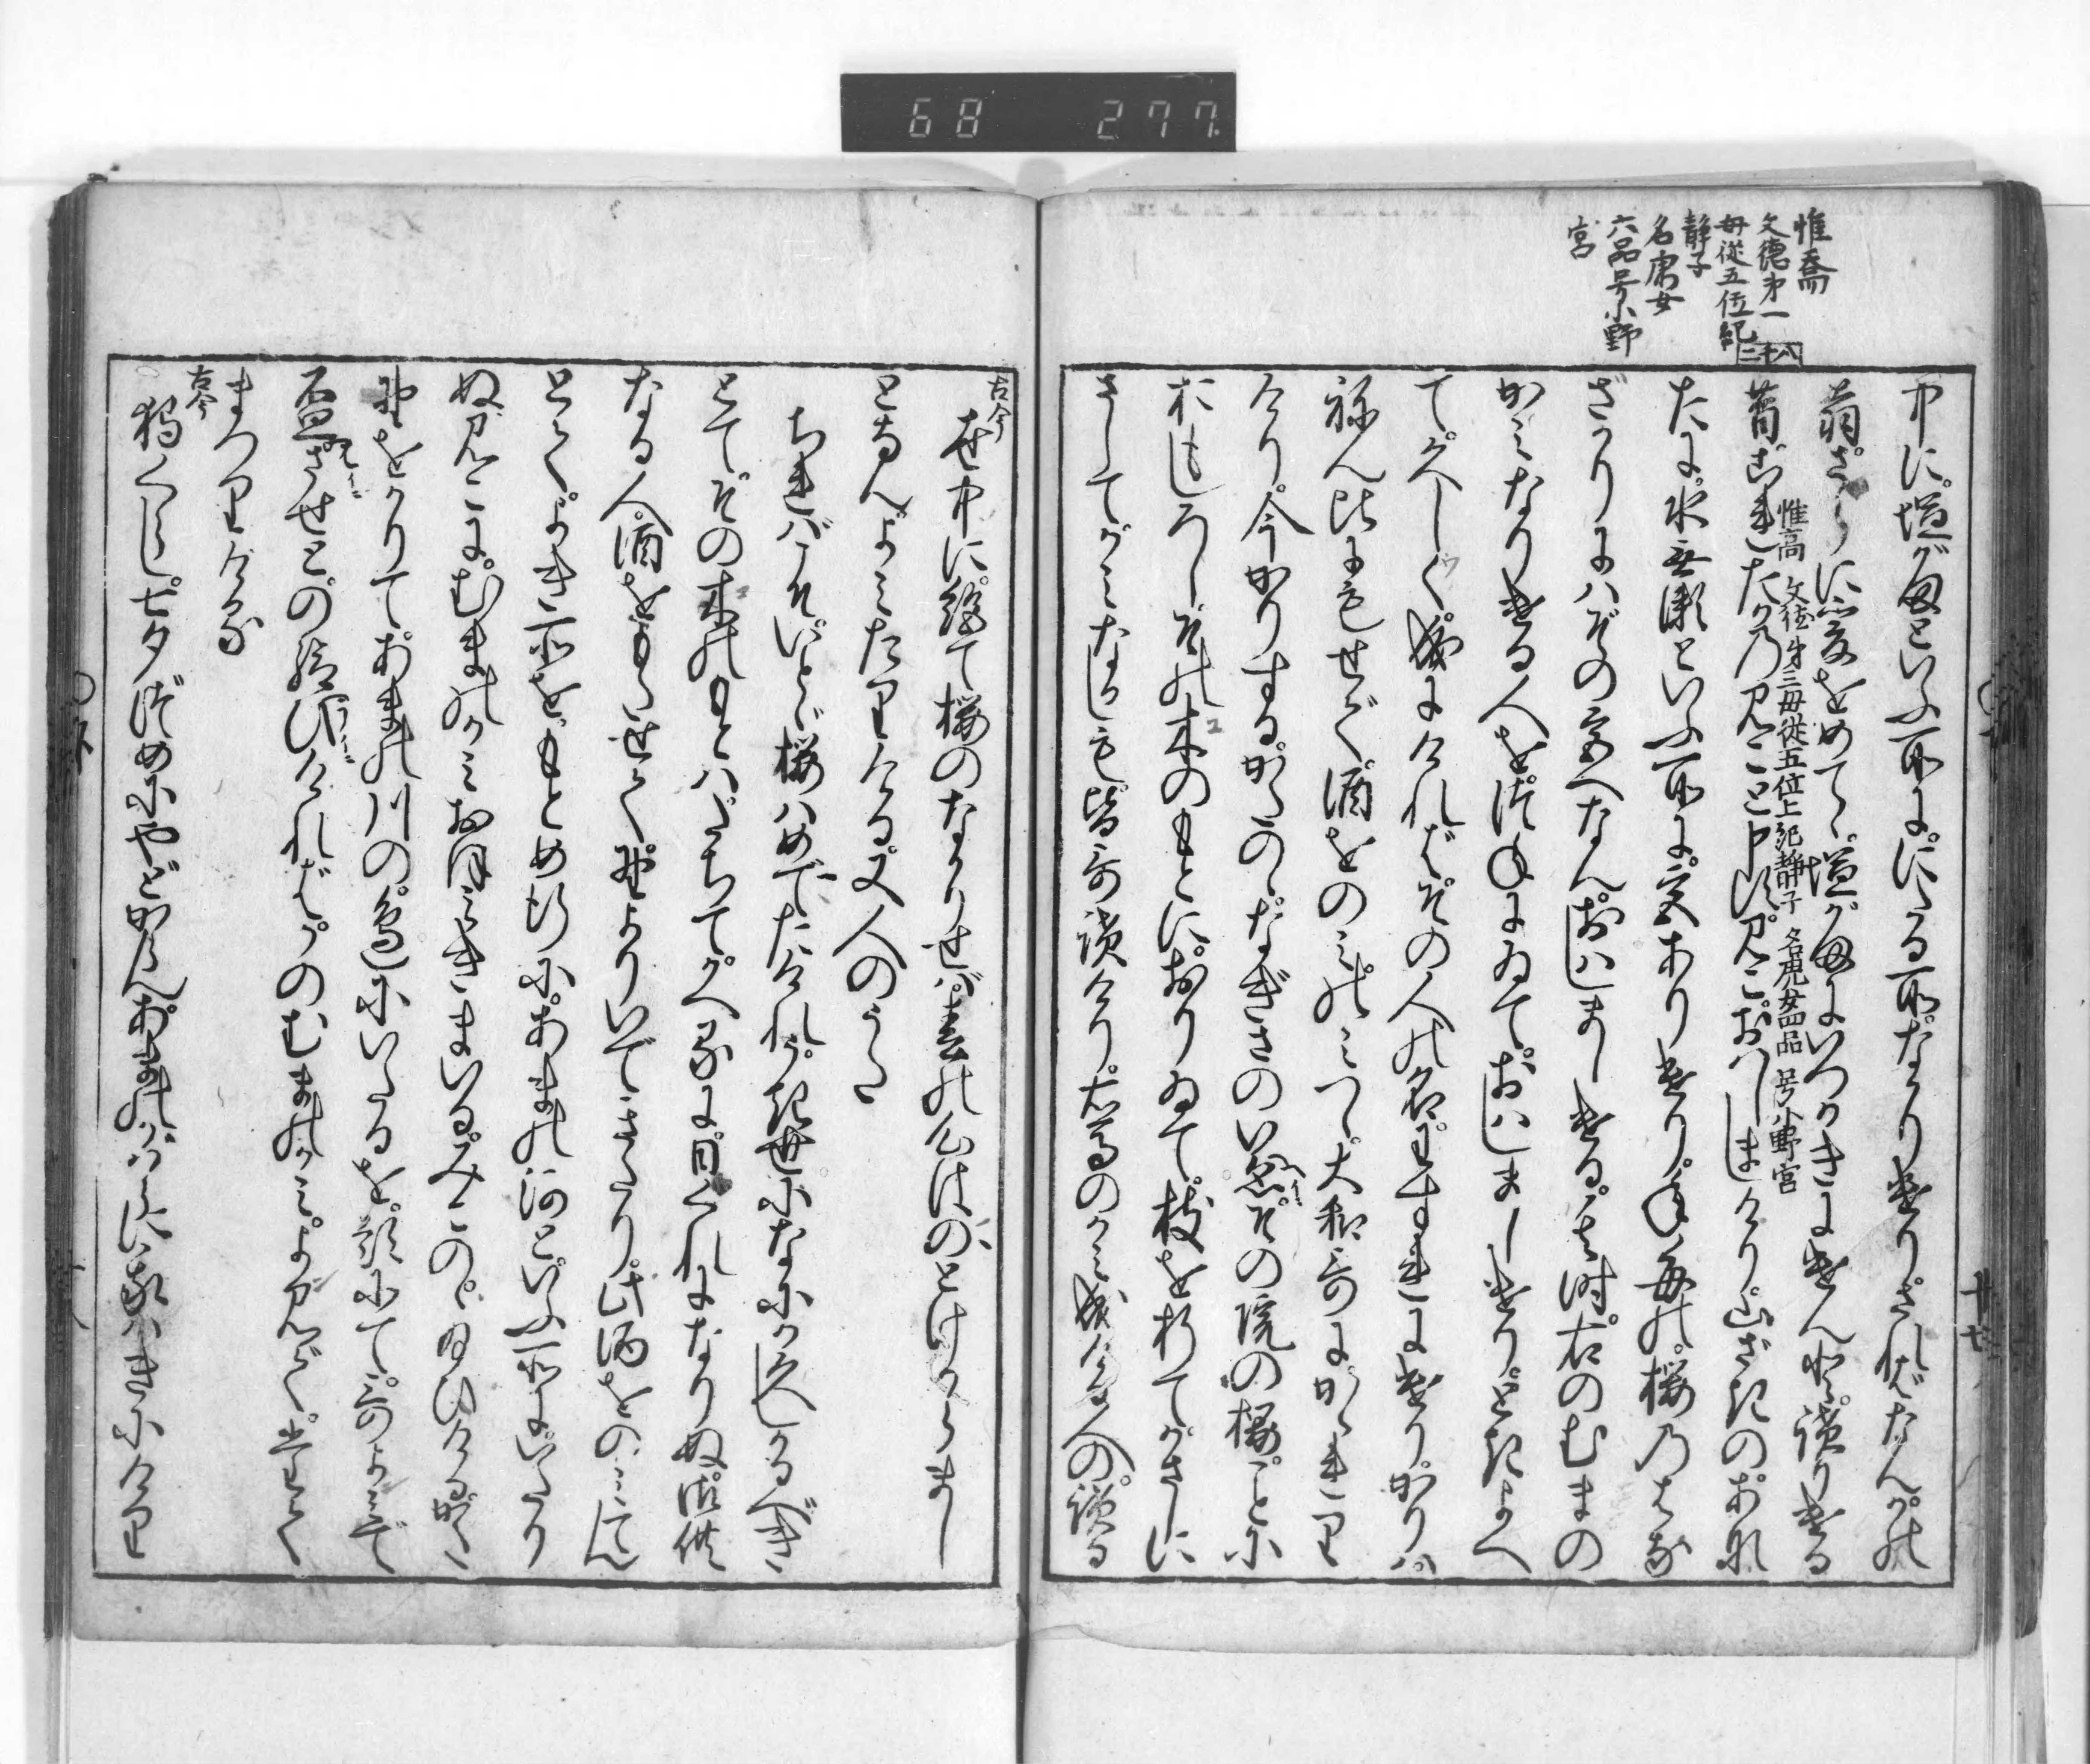 68 277
惟喬
文徳第一
母従五位紀
静子
名虎女
六品号小野
宮
二十八
中に塩がまといふ所にゝたる所なかりけりされバなんかの
翁さらに爰をめでゝ塩がまにいつかきにけんと讀りける
昔これたかのみこと申すみこおハしましけり山ざきのあな
惟高 文徳第三母従五位上紀静子 名虎女四品 号小野宮
たに水無瀬といふ所に宮ありけり年毎の桜のはな
ざかりにハその宮へなんおハしましける其時右のむまの
かみなりける人を常にゐておハしましけりときよへ
て久しく成にけれバその人の名わすれにけりかりハ
ねんころにもせで酒をのミのミつゝ大和哥にかゝれり
けり今かりするかたのゝなぎさのいゑその院の桜ことに
おもしろしその木のもとにおりゐて枝を折てかざしに
さしてかミなかしも皆哥讀けりむまのかミ成ける人の讀る
古今
世中に絶て桜のなかりせバ春の心はのどけからまし
となんよミたりける又人のうた
ちれバこそいとゞ桜ハめでたけれうき世になにか久しかるべき
とてその木のもとハたちてかへるに日くれになりぬ御供
なる人酒をもたせて野よりいできたり此酒をのミてん
とてよき所をもとめ行にあまの河といふ所にいたり
ぬみこにむまのかミおほみきまいるみこのの給ひけるかた
野をかりてあまの川の邉にいたるを題にて哥よミて
盃ハさせとの給ひけれバかのむまのかミよみて奉
まつりける
古今
狩くらし七夕つめにやどからんあまのがハらに我ハきにけり